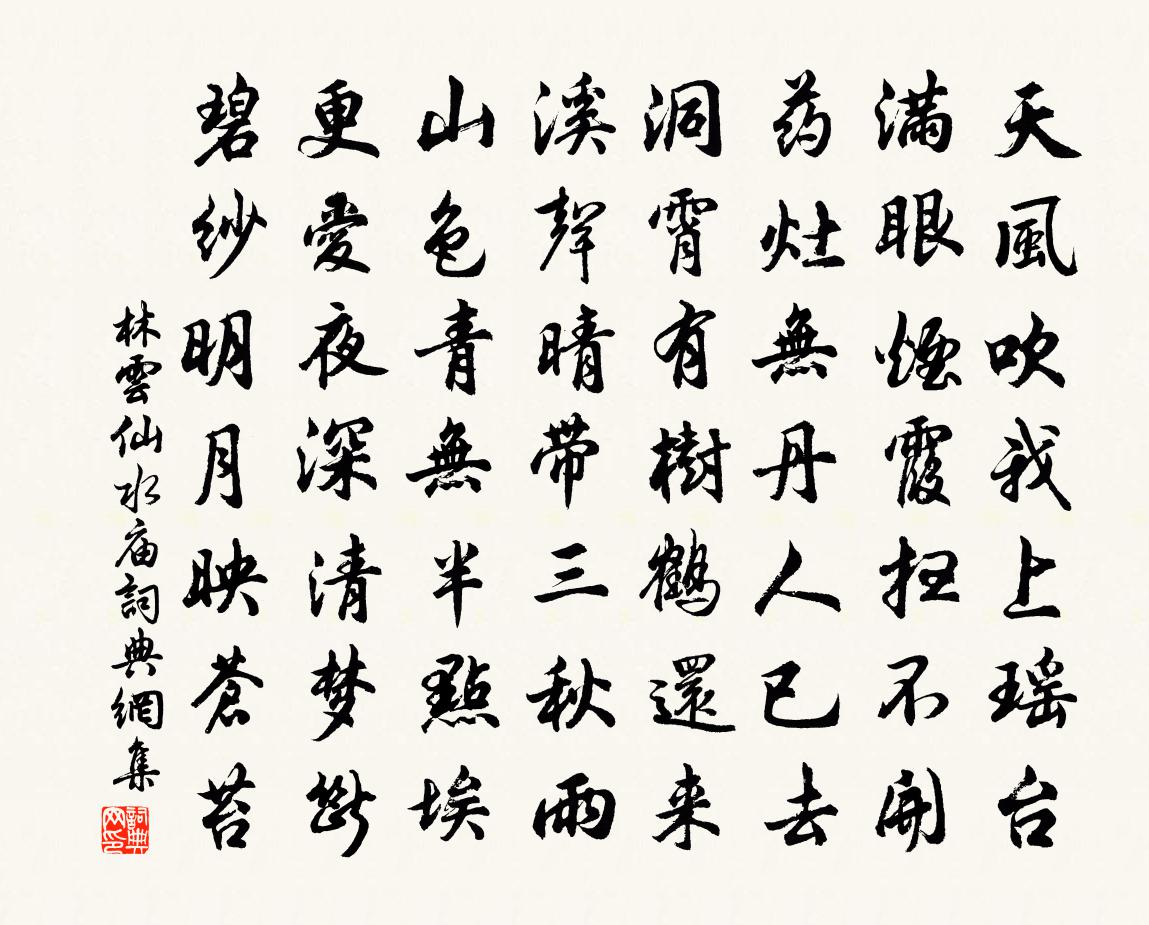 天風吹我上瑶台
满眼煙霞扫不開
药灶無丹人已去
洞霄有樹鶴還来
溪聲晴带三秋雨
山色青無半點埃
更愛夜深清梦斷
碧纱明月映蒼苔
林雲仙水庙詞典網集
詞典
网印